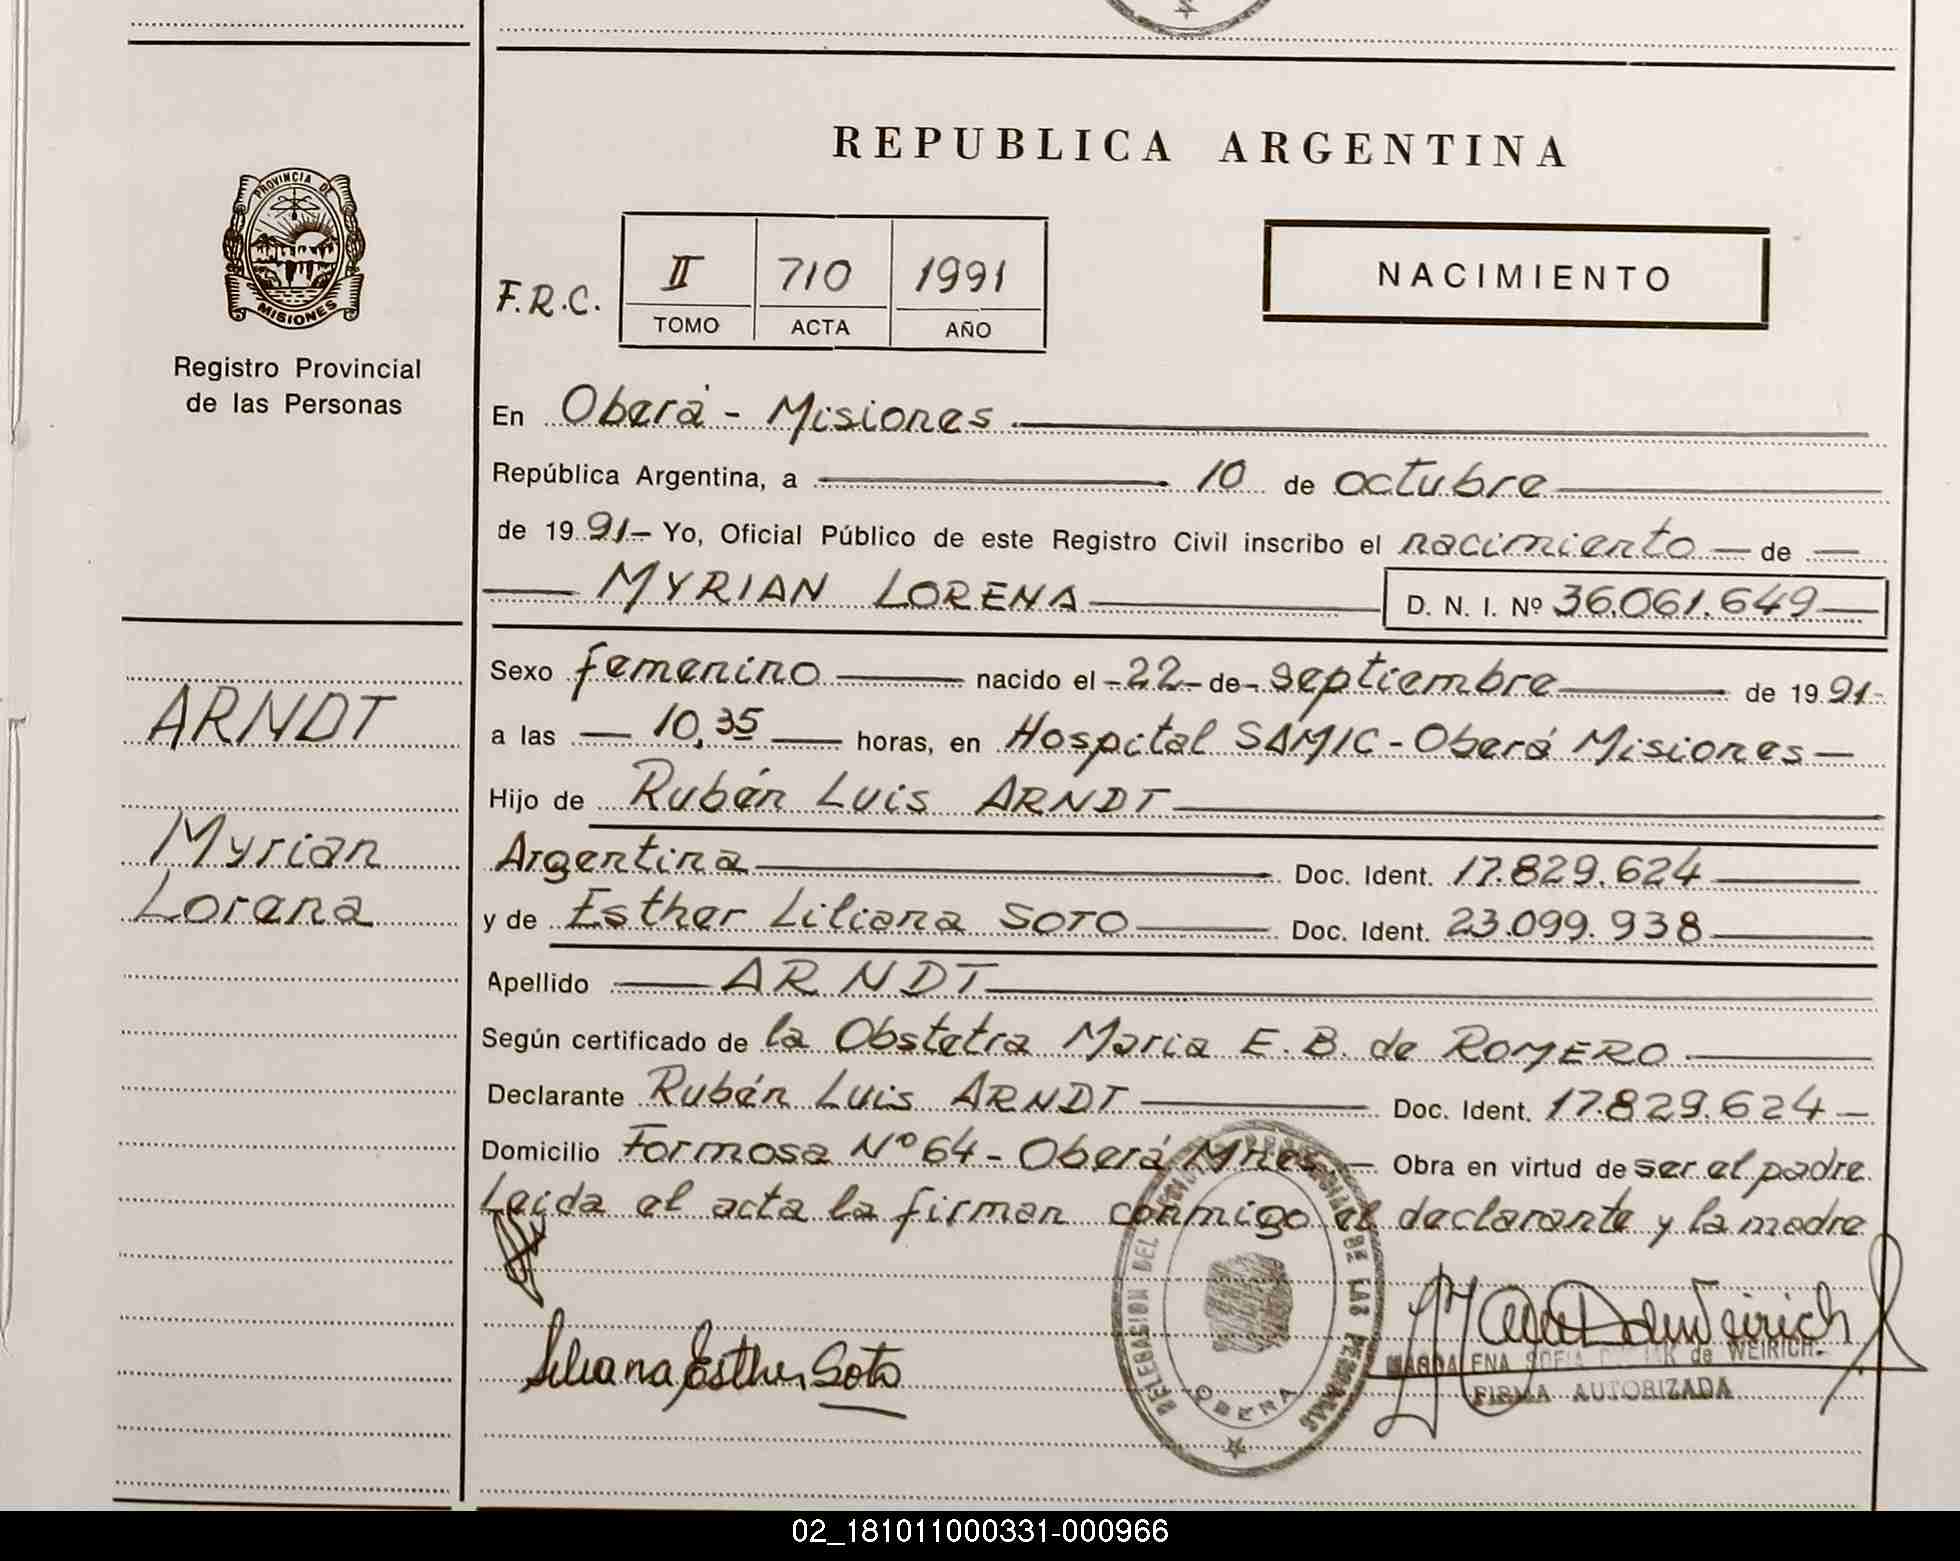 PROVINCIA DE
MISIONES
Registro Provincial
de las Personas
ARNDT
Myrian
Lorena
REPUBLICA ARGENTINA
F.R.C.
II 710 1991
TOMO ACTA AÑO
NACIMIENTO
En Oberá - Misiones
República Argentina, a 10 de octubre
de 19 91- Yo, Oficial Público de este Registro Civil inscribo el nacimiento — de —
MYRIAN LORENA D. N. I. Nº 36.061.649
Sexo femenino nacido el -22- de- septiembre de 19 91-
a las — 10,35 — horas, en Hospital SAMIC - Oberá Misiones —
Hijo de Rubén Luis ARNDT
Argentina Doc. Ident. 17.829.624
y de Esther Liliana SOTO Doc. Ident. 23.099.938
Apellido ARNDT
Según certificado de la Obstetra Maria E. B. de ROMERO
Declarante Rubén Luis ARNDT Doc. Ident. 17.829.624 —
Domicilio Formosa Nº 64 - Oberá Mnes. — Obra en virtud de ser el padre
Leida el acta la firman conmigo el declarante y la madre
Liliana Esther Soto
DELEGACION DEL DE LAS PERSONAS
OBERA
MAGDALENA SOFIA de WEIRICH
FIRMA AUTORIZADA
02_181011000331-000966